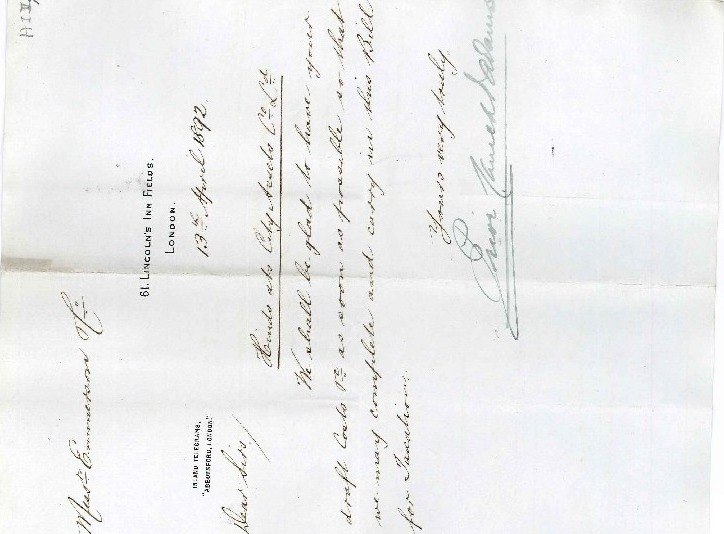 61, LINCOLN'S INN FIELDS,
LONDON.
13th April 1892
Messrs Emmerson & Co
INLAND TELEGRAMS,
"ABBOTSFORD, LONDON."
Dear Sirs/
Hinds ats City Assets Co Ld
We shall be glad to have your
draft Costs &c as soon as possible so that
we may complete and carry in this Bill
for Taxation.
Yours very truly
Prior
Adams